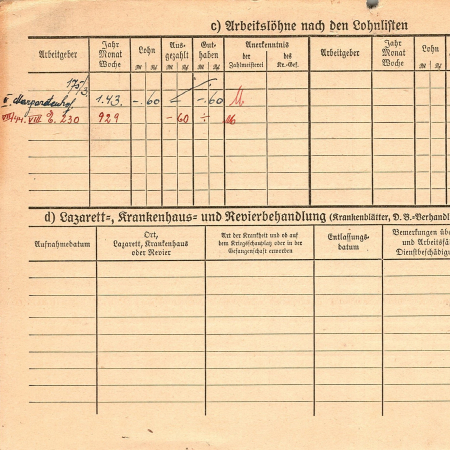 c) Arbeitslöhne nach den Lohnlisten
Arbeitgeber Jahr Monat Woche Lohn Aus- gezahlt Gut- haben Anerkenntnis Arbeitgeber Jahr Monat Woche Lohn
ℛℳ ₰ ℛℳ ₰ ℛℳ ₰ der Zahlmeisterei des Kr.-Gef. ℛℳ ₰
175/3
1.43. -.60 -.60
VIII E. 230 929 -60 ÷
d) Lazarett-, Krankenhaus- und Revierbehandlung (Krankenblätter, D. B.-Verhandl
Aufnahmedatum Ort, Lazarett, Krankenhaus oder Revier Art der Krankheit und ob auf dem Kriegsschauplatz oder in der Gefangenschaft erworben Entlassungs- datum Bemerkungen übe und Arbeitsfä Dienstbeschädigu